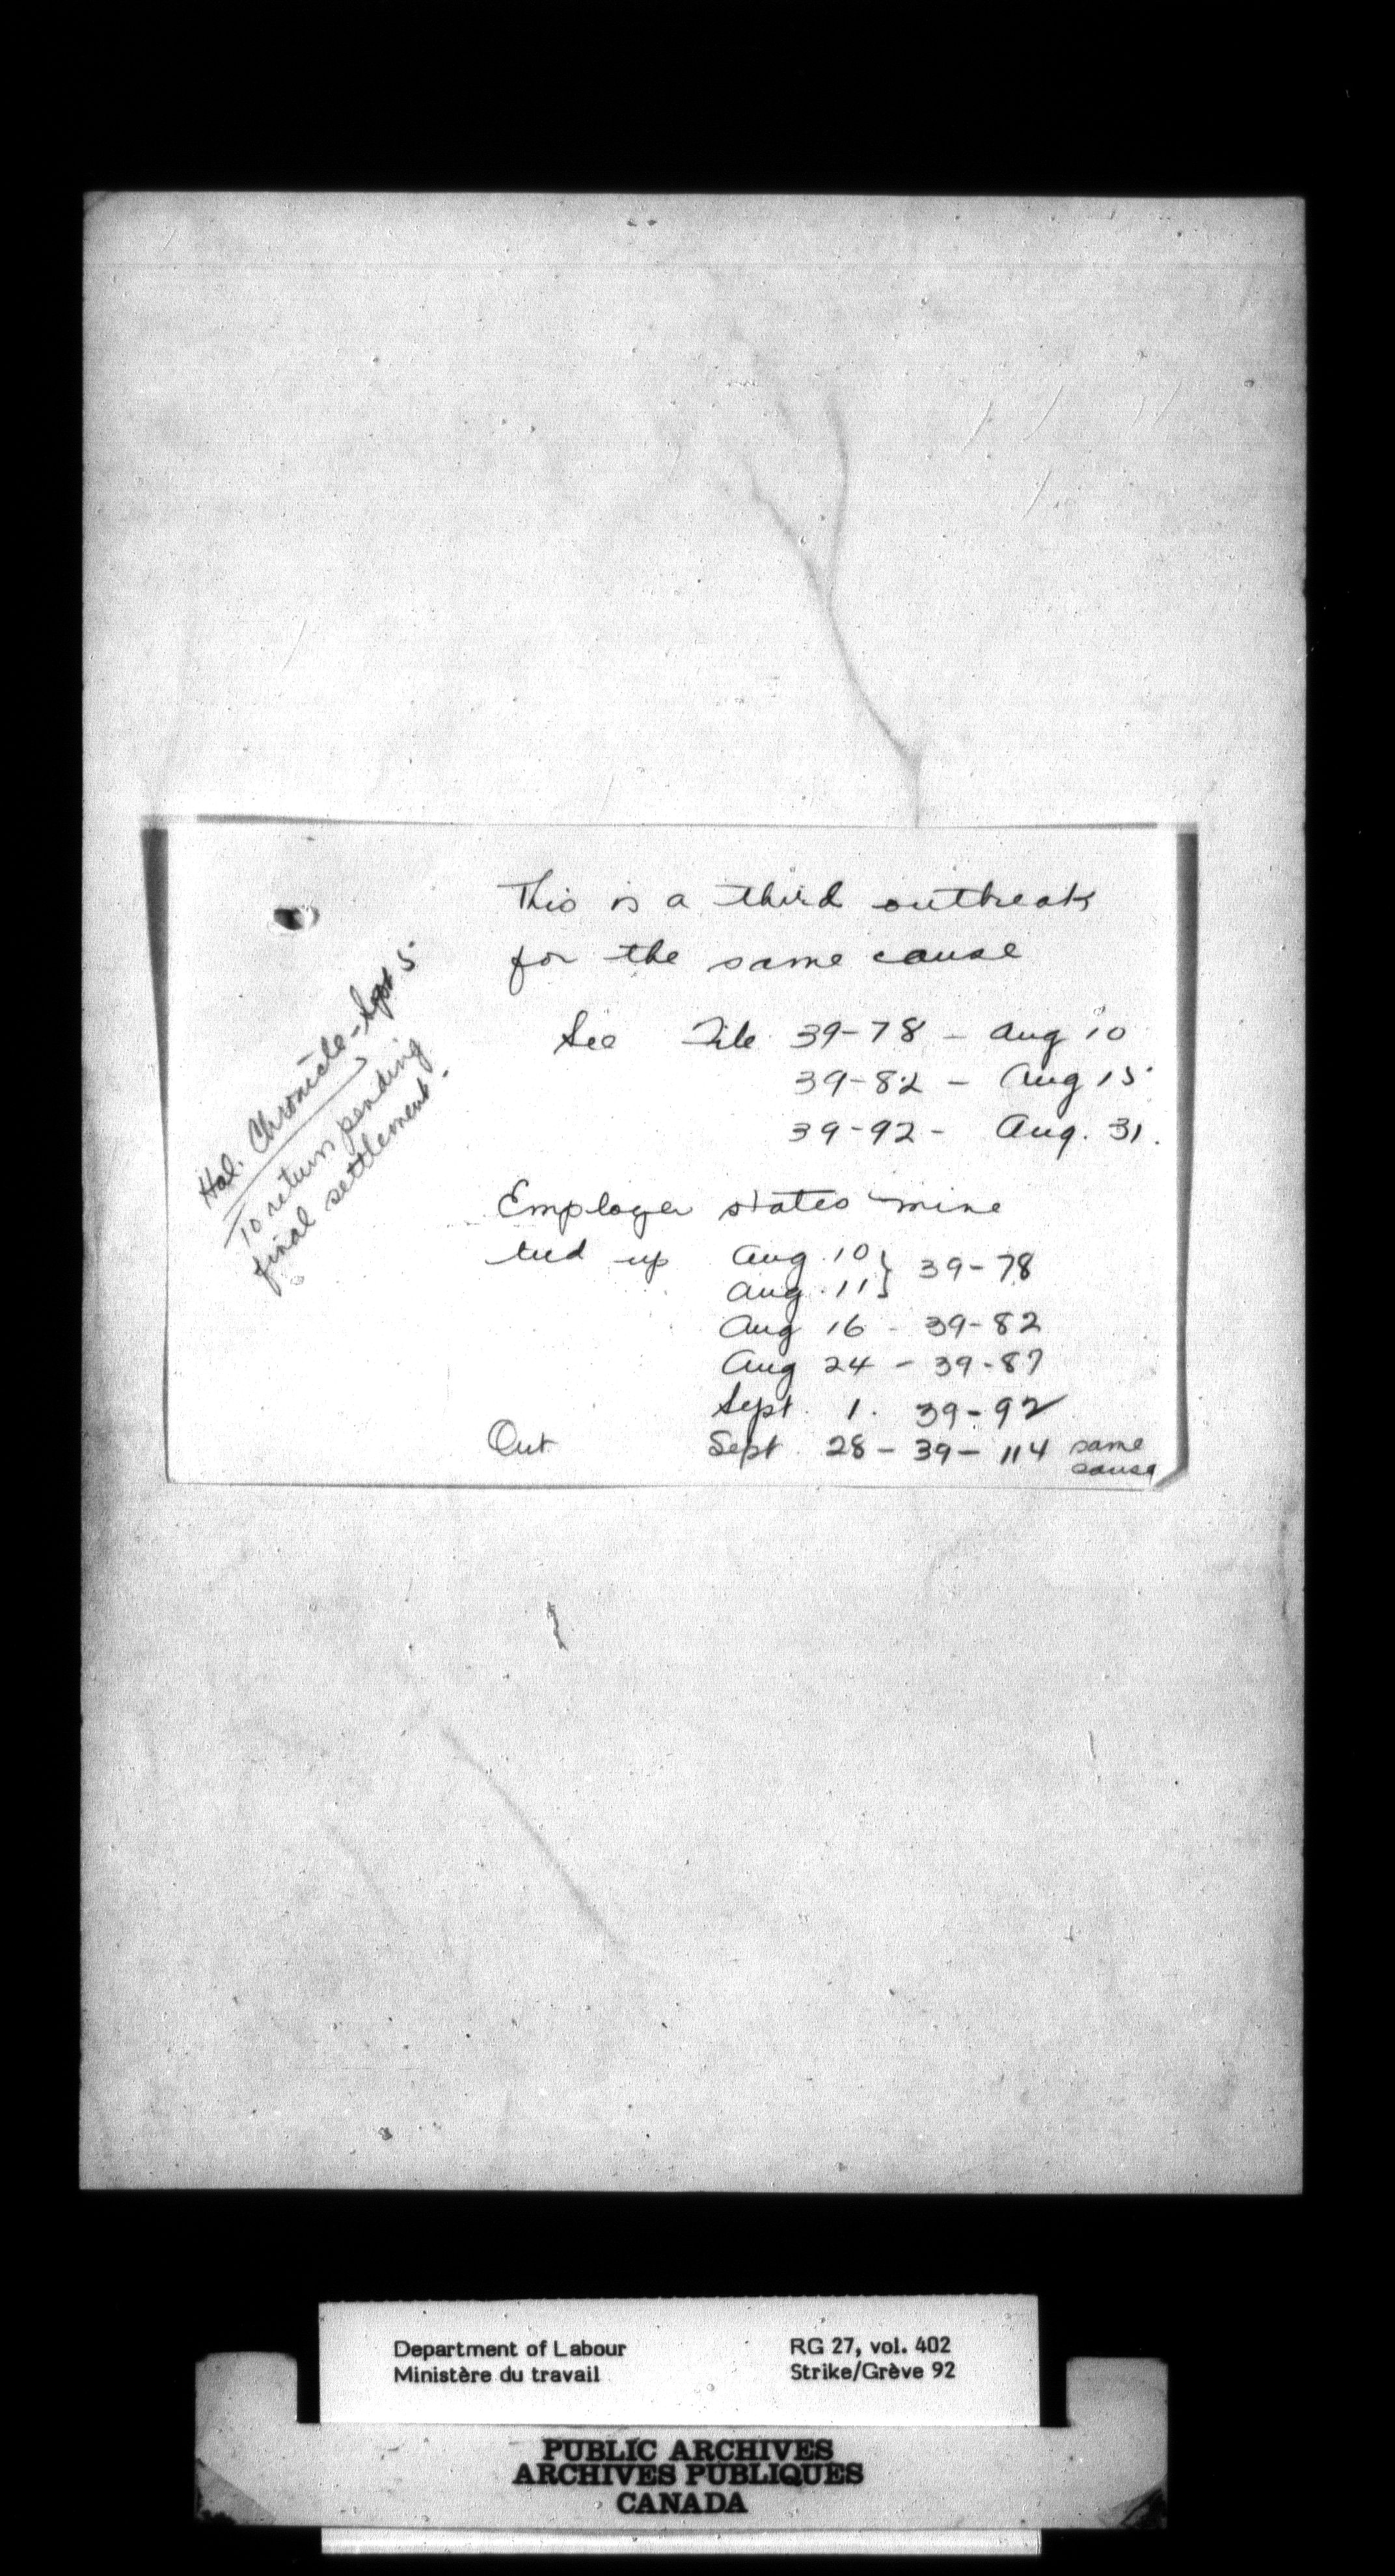 This is a third outbreak
for the same cause
See File 39-78 - Aug 10
39-82 - Aug 15
39-92 - Aug. 31.
Hal. Chronicle - Sept 5
To return pending
final settlement -
Employer states mine
tied up Aug. 10 } 39-78
Aug. 11
Aug 16 - 39-82
Aug 24 - 39-87
Sept. 1. 39-92
Out Sept. 28 - 39-114 same
cause
Department of Labour
Ministère du travail
RG 27, vol. 402
Strike/Grève 92
PUBLIC ARCHIVES
ARCHIVES PUBLIQUES
CANADA